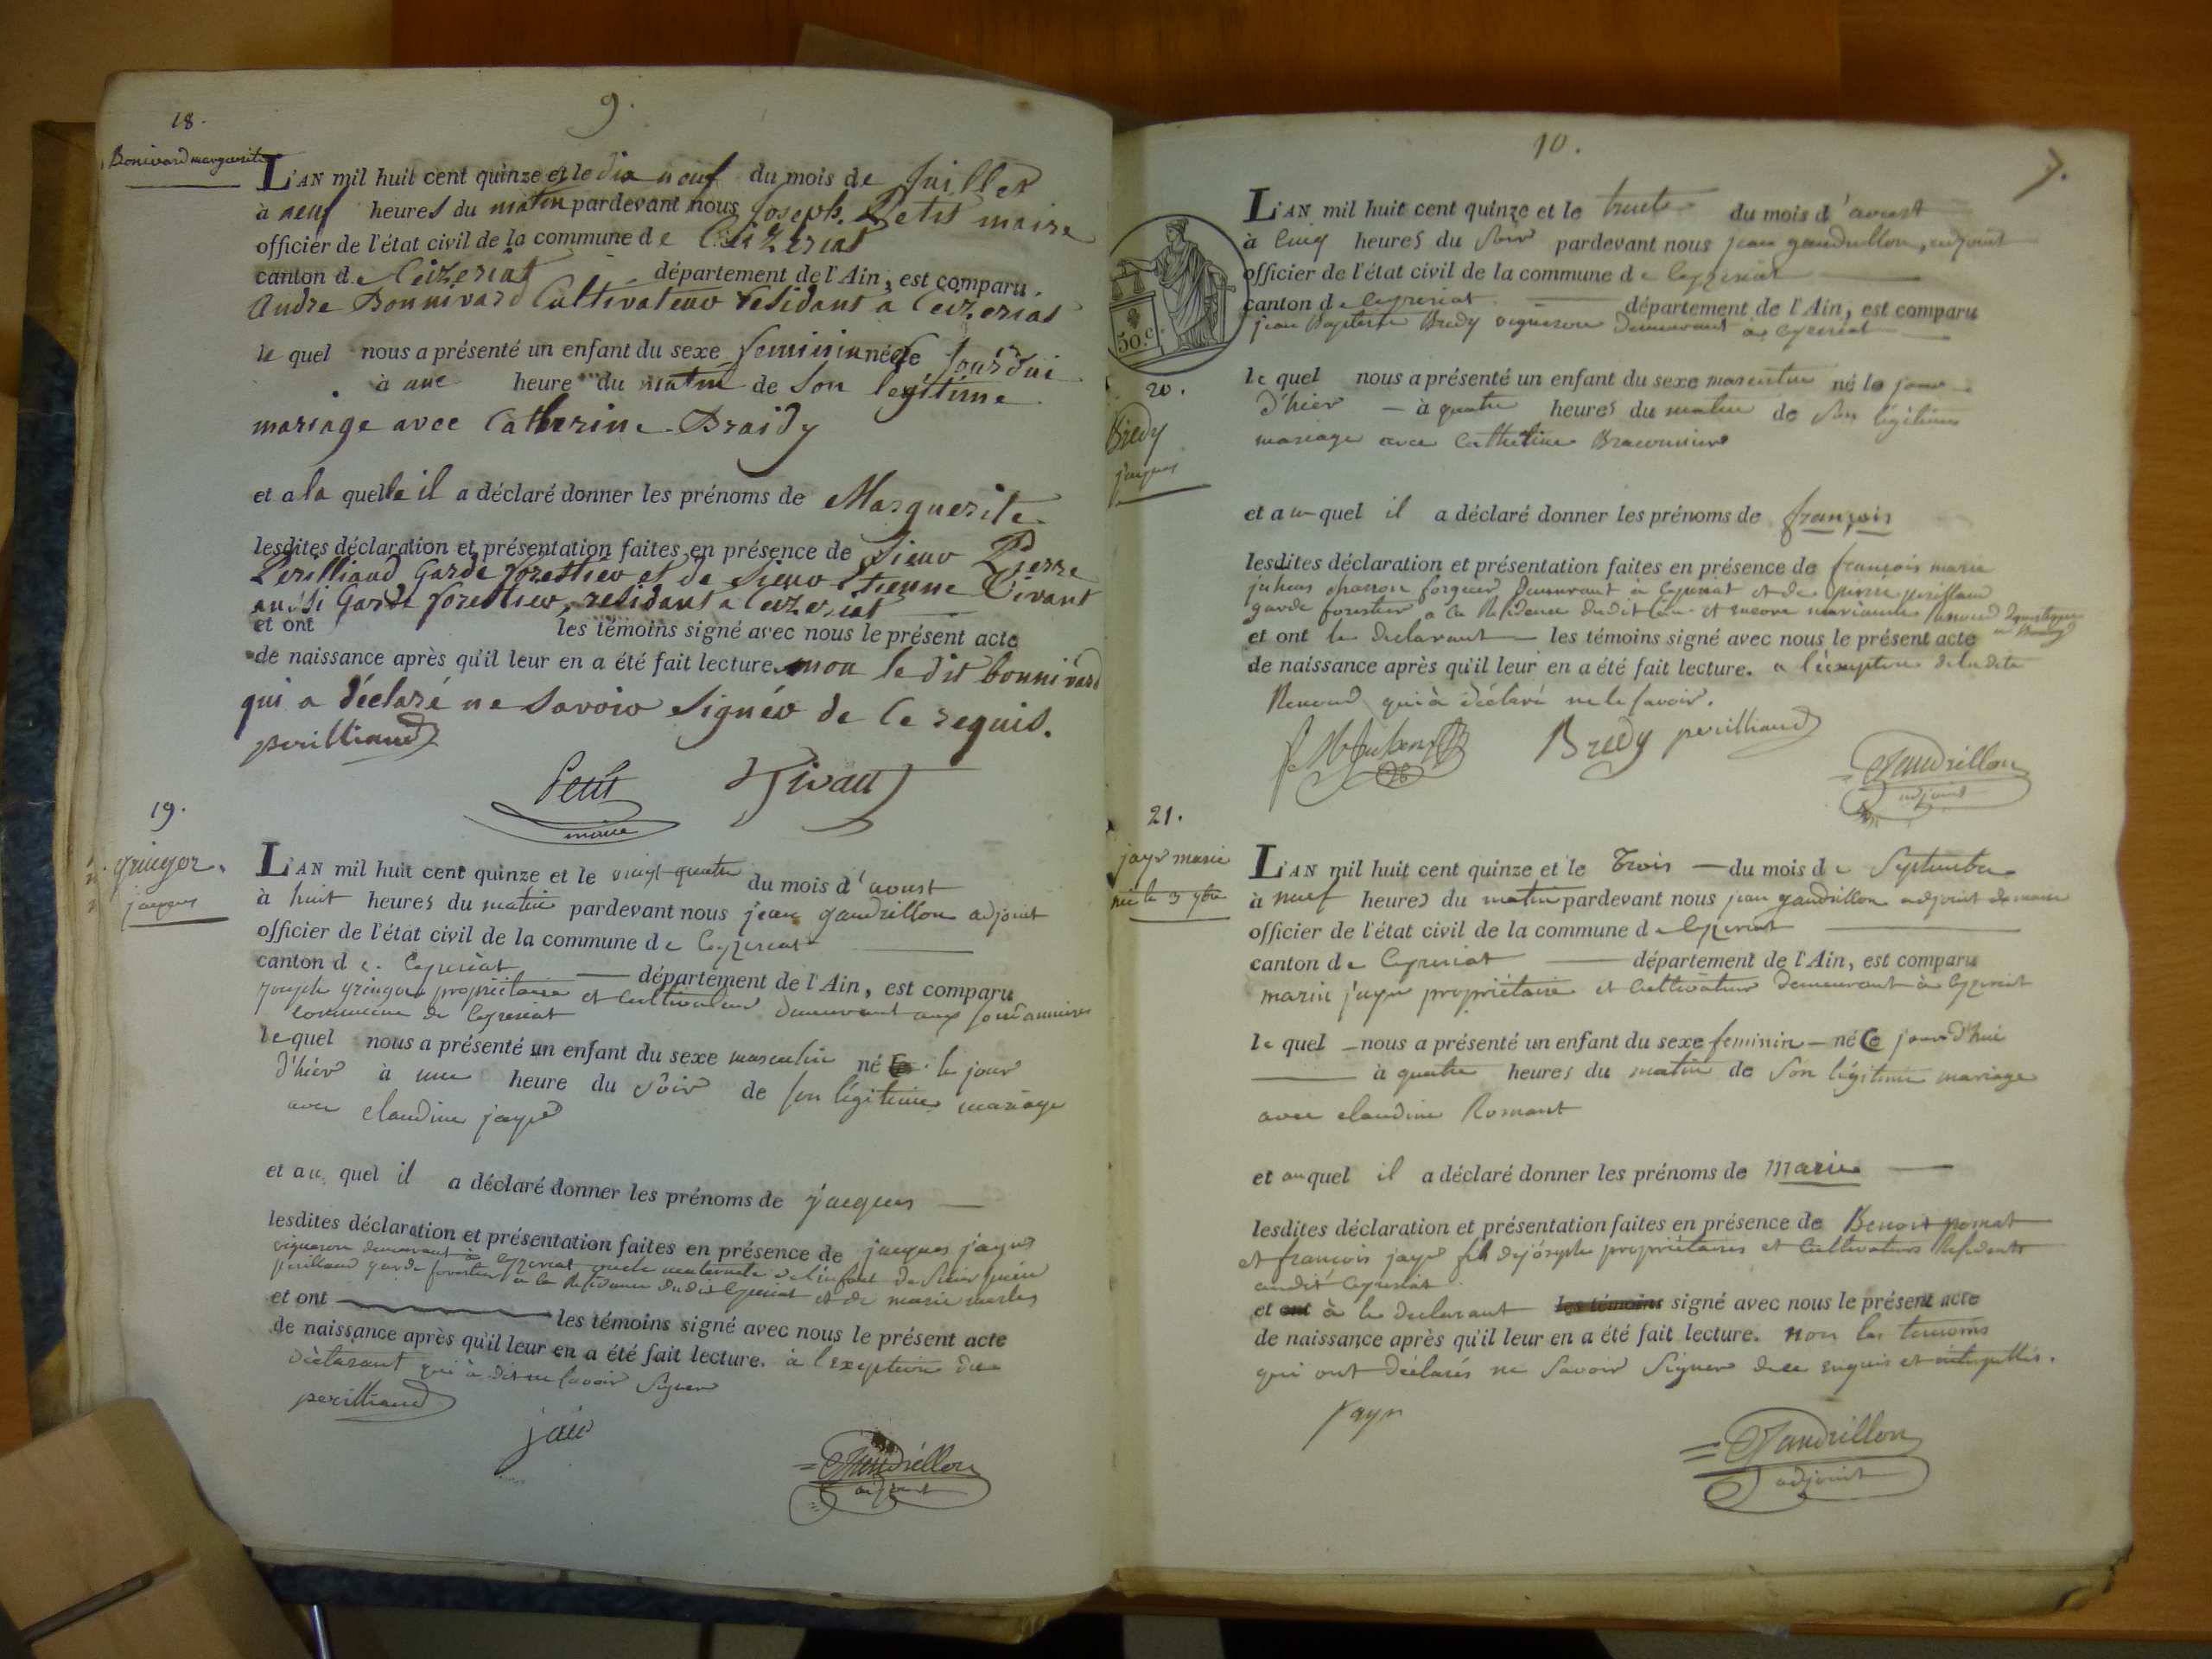 9.
18.
Bonivard marguerite
L'AN mil huit cent quinze et le dix neuf du mois de Juillet
à neuf heures du matin pardevant nous Joseph Petit maire
officier de l'état civil de la commune de Ceizeriat
canton de Ceizeriat département de l'Ain, est comparu
Andre Bonnivard Cultivateur residant a Ceizeriat
le quel nous a présenté un enfant du sexe feminin née Jourdui
à une heure du matin de son legitime
mariage avec Catherine Braidy
et a la quelle il a déclaré donner les prénoms de Marguerite
lesdites déclaration et présentation faites en présence de Sieur Pierre
Perilliaud Garde forestier et de Sieur Etienne Tivant
aussi Garde forestier, residant a Ceizeriat
et ont les témoins signé avec nous le présent acte
de naissance après qu'il leur en a été fait lecture. non le dit bonnivard
qui a déclaré ne savoir signér de ce requis.
perilliaud
Petit
maire
Tivant
19.
gringoz.
jacques
L'AN mil huit cent quinze et le vingt quatre du mois d'aoust
à huit heures du matin pardevant nous jean gaudrillon adjoint
officier de l'état civil de la commune de Ceyzeriat
canton de Ceyzeriat département de l'Ain, est comparu
joseph gringoz propriétaire et Cultivateur demeurant aux
commune de Ceyzeriat
le quel nous a présenté un enfant du sexe masculin né le jour
d'hier à une heure du soir de son légitime mariage
avec claudine jayr
et au quel il a déclaré donner les prénoms de jacques
lesdites déclaration et présentation faites en présence de jacques jayr
vigneron demeurant à Ceyzeriat oncle maternele de l'enfant de Sieur pierre
perilliaud garde forestier a la Residence dudit Ceyzeriat et de marie
et ont les témoins signé avec nous le présent acte
de naissance après qu'il leur en a été fait lecture. à l'exeption du
déclarant qui à dit ne savoir signer
perilliaud
jair
Gaudrillon
adjoint
10.
7.
L'AN mil huit cent quinze et le trente du mois d'aoust
à Cinq heures du Soir pardevant nous jean gaudrillon, adjoint
officier de l'état civil de la commune de Ceyzeriat
canton de Ceyzeriat département de l'Ain, est comparu
jean Baptiste Bredy vigneron Demeurant à Ceyzeriat
50.c.
20.
Bredy
jacques
le quel nous a présenté un enfant du sexe masculin né le jour
d'hier à quatre heures du matin de Son légitime
mariage avec Catherine Braconnier
et au quel il a déclaré donner les prénoms de françois
lesdites déclaration et présentation faites en présence de françois marie
juhens Demeurant à Ceyzeriat et de pierre perilliaud
garde forestier a la Residence dudit lieu et encore Renoud
et ont le declarant les témoins signé avec nous le présent acte
de naissance après qu'il leur en a été fait lecture. a l'éxeption de ladite
Renoud qui à déclaré ne le savoir.
Bredy
perilliaud
Gaudrillon
adjoint
21.
jayr marie
née le 3 7bre
L'AN mil huit cent quinze et le Trois du mois de Septembre
à neuf heures du matin pardevant nous jean gaudrillon adjoint de maire
officier de l'état civil de la commune de Ceyzeriat
canton de Ceyzeriat département de l'Ain, est comparu
marin jayr propriétaire et Cultivateur Demeurant à Ceyzeriat
le quel nous a présenté un enfant du sexe feminin né Ce jourd'hui
à quatre heures du matin de Son légitime mariage
avec claudine Romant
et au quel il a déclaré donner les prénoms de Marie
lesdites déclaration et présentation faites en présence de Benoit romat
et françois jayr fils de joseph propriétaires et Cultivateurs Residents
audit Ceyzeriat
et ont à le declarant les témoins signé avec nous le présent acte
de naissance après qu'il leur en a été fait lecture. non les temoins
qui ont déclarés ne Savoir Signer de ce enquis et interpellés.
Jayr
Gaudrillon
adjoint